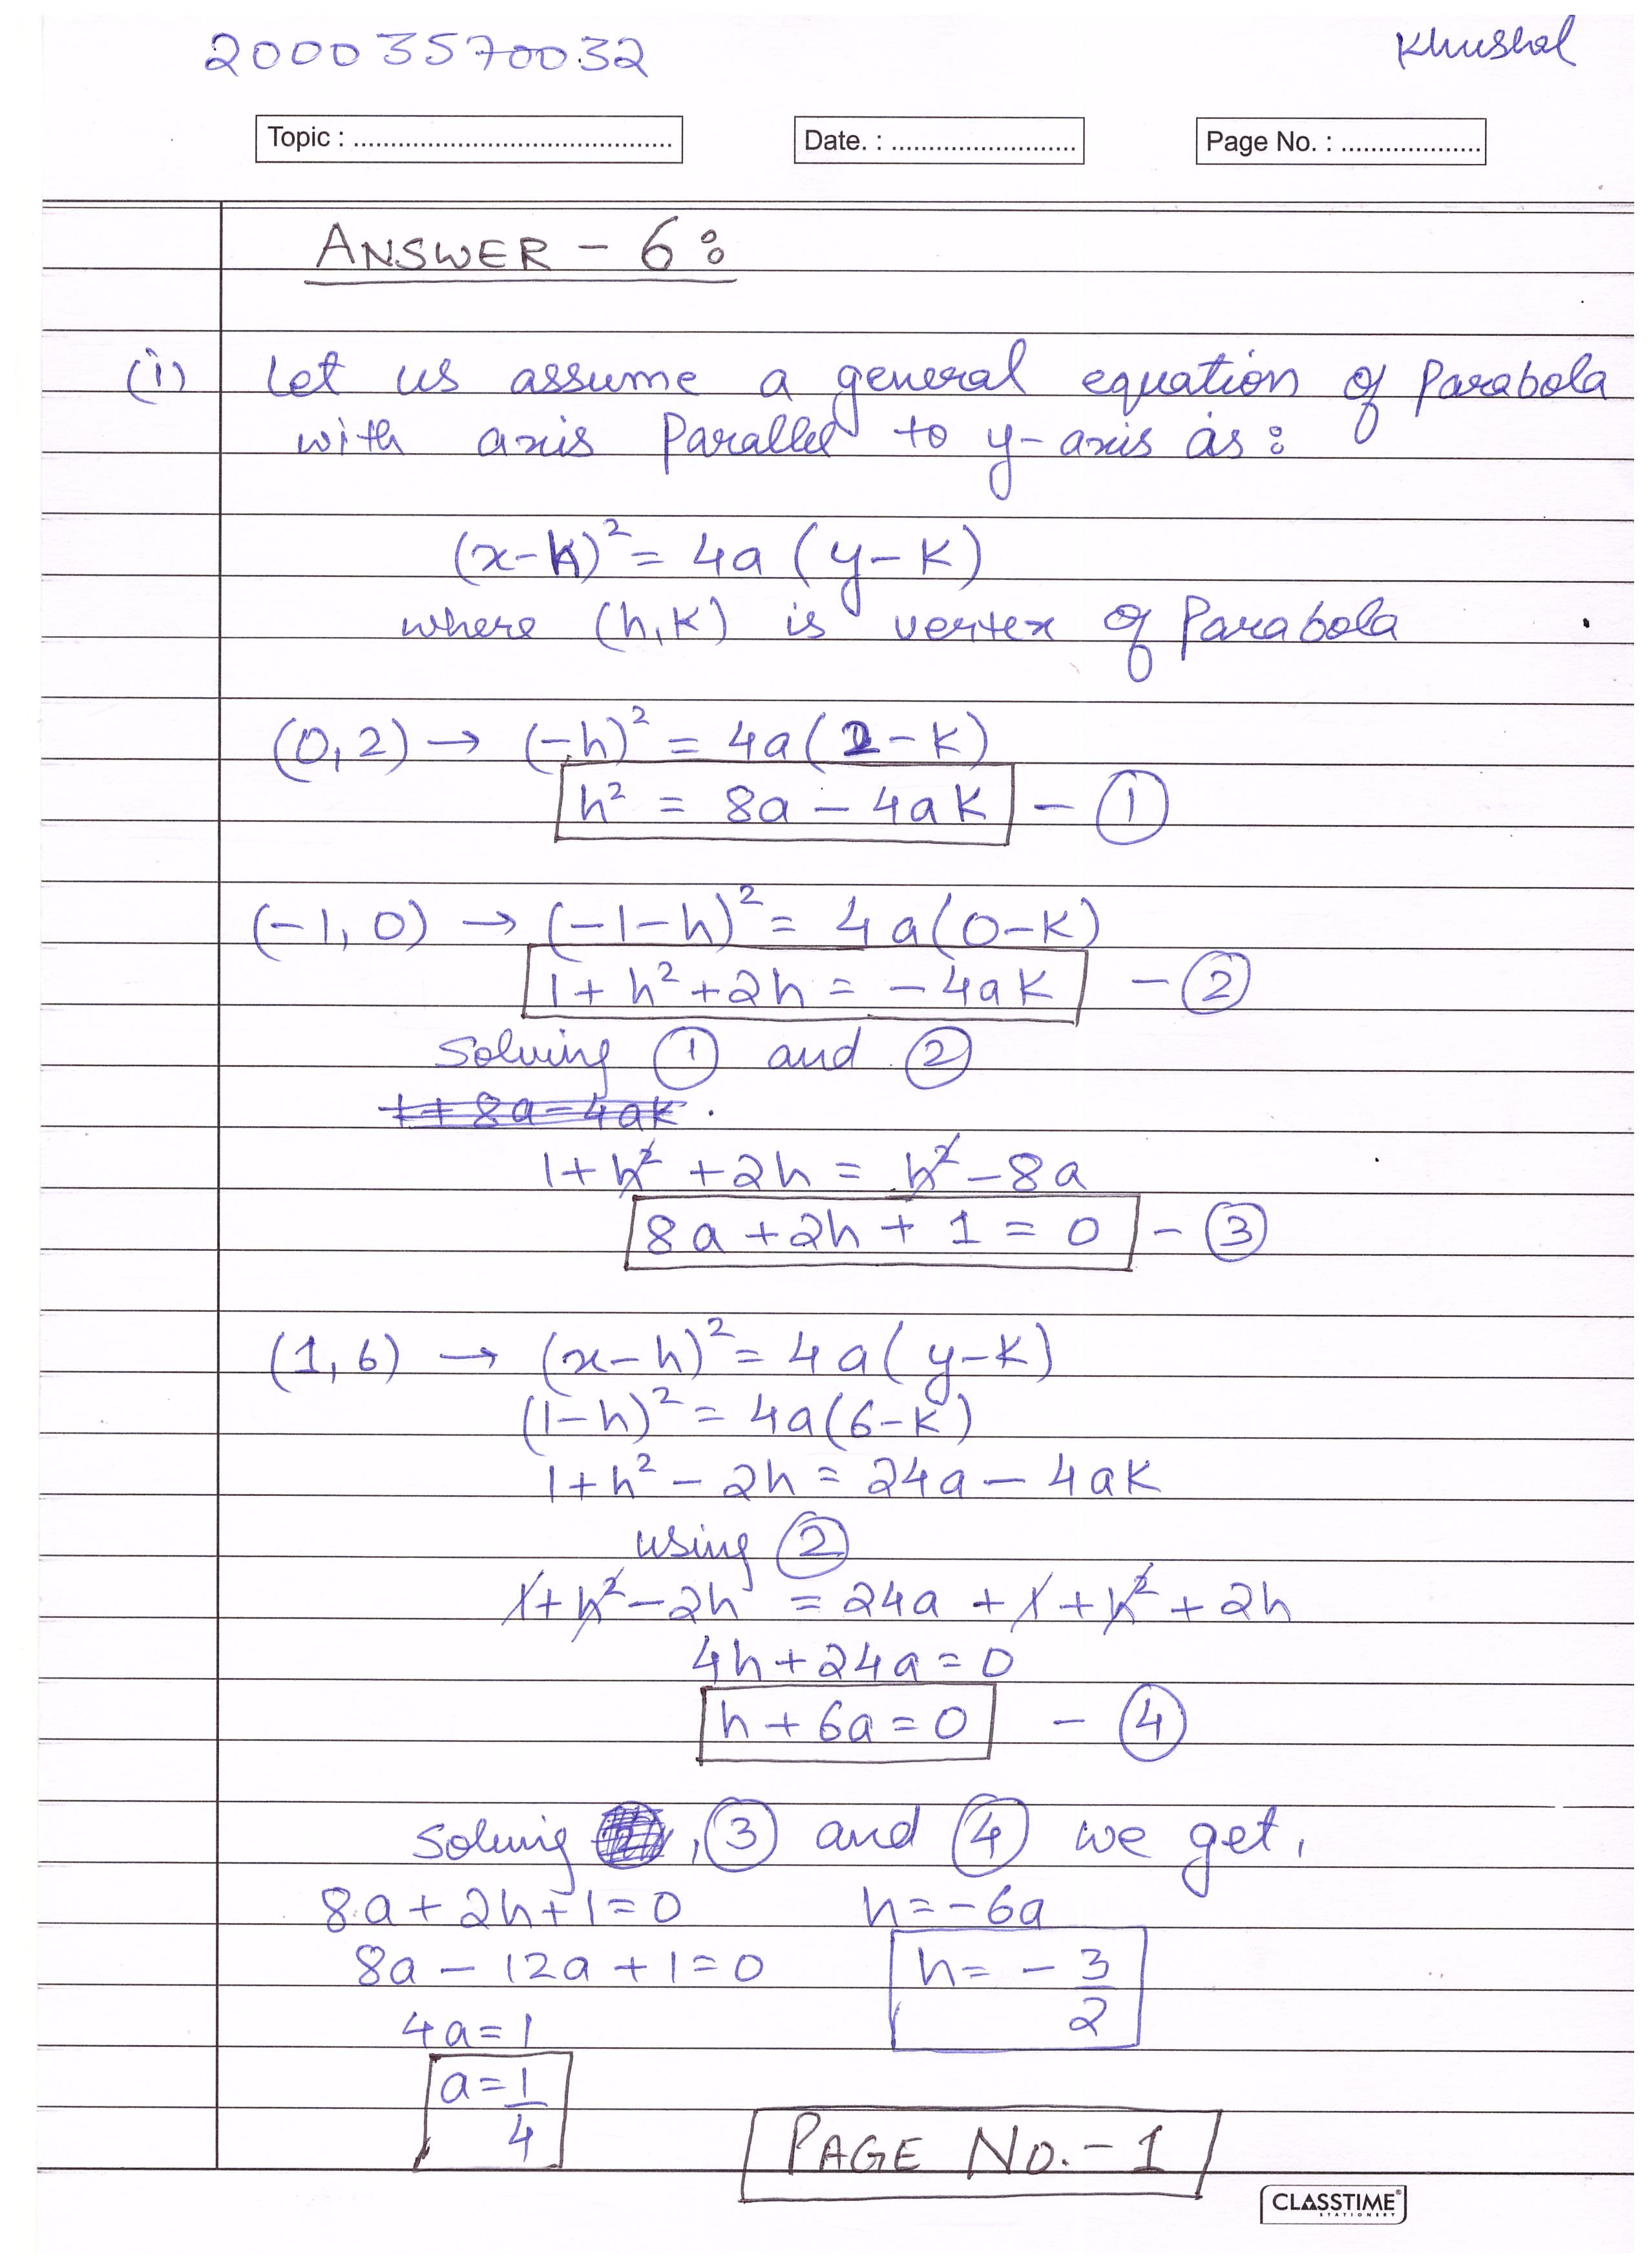 20003570032 Khushal
Topic : .......................................... Date. : ......................... Page No. : ...................
ANSWER - 6:
(i) Let us assume a general equation of Parabola
with axis Parallel to y-axis as:
(x-h)² = 4a (y-k)
where (h,k) is vertex of Parabola
(0,2) → (-h)² = 4a(2-k)
h² = 8a - 4ak - ①
(-1,0) → (-1-h)² = 4a(0-k)
1+h²+2h = -4ak - ②
Solving ① and ②
1+h²+2h = h²-8a
8a+2h+1=0 - ③
(1,6) → (x-h)² = 4a(y-k)
(1-h)² = 4a(6-k)
1+h²-2h = 24a - 4ak
using ②
1+h²-2h = 24a+1+h²+2h
4h+24a=0
h+6a=0 - ④
Solving , ③ and ④ we get,
8a+2h+1=0 h=-6a
8a-12a+1=0 h= -3/2
4a=1
a=1/4
PAGE NO.-1
CLASSTIME
STATIONERY